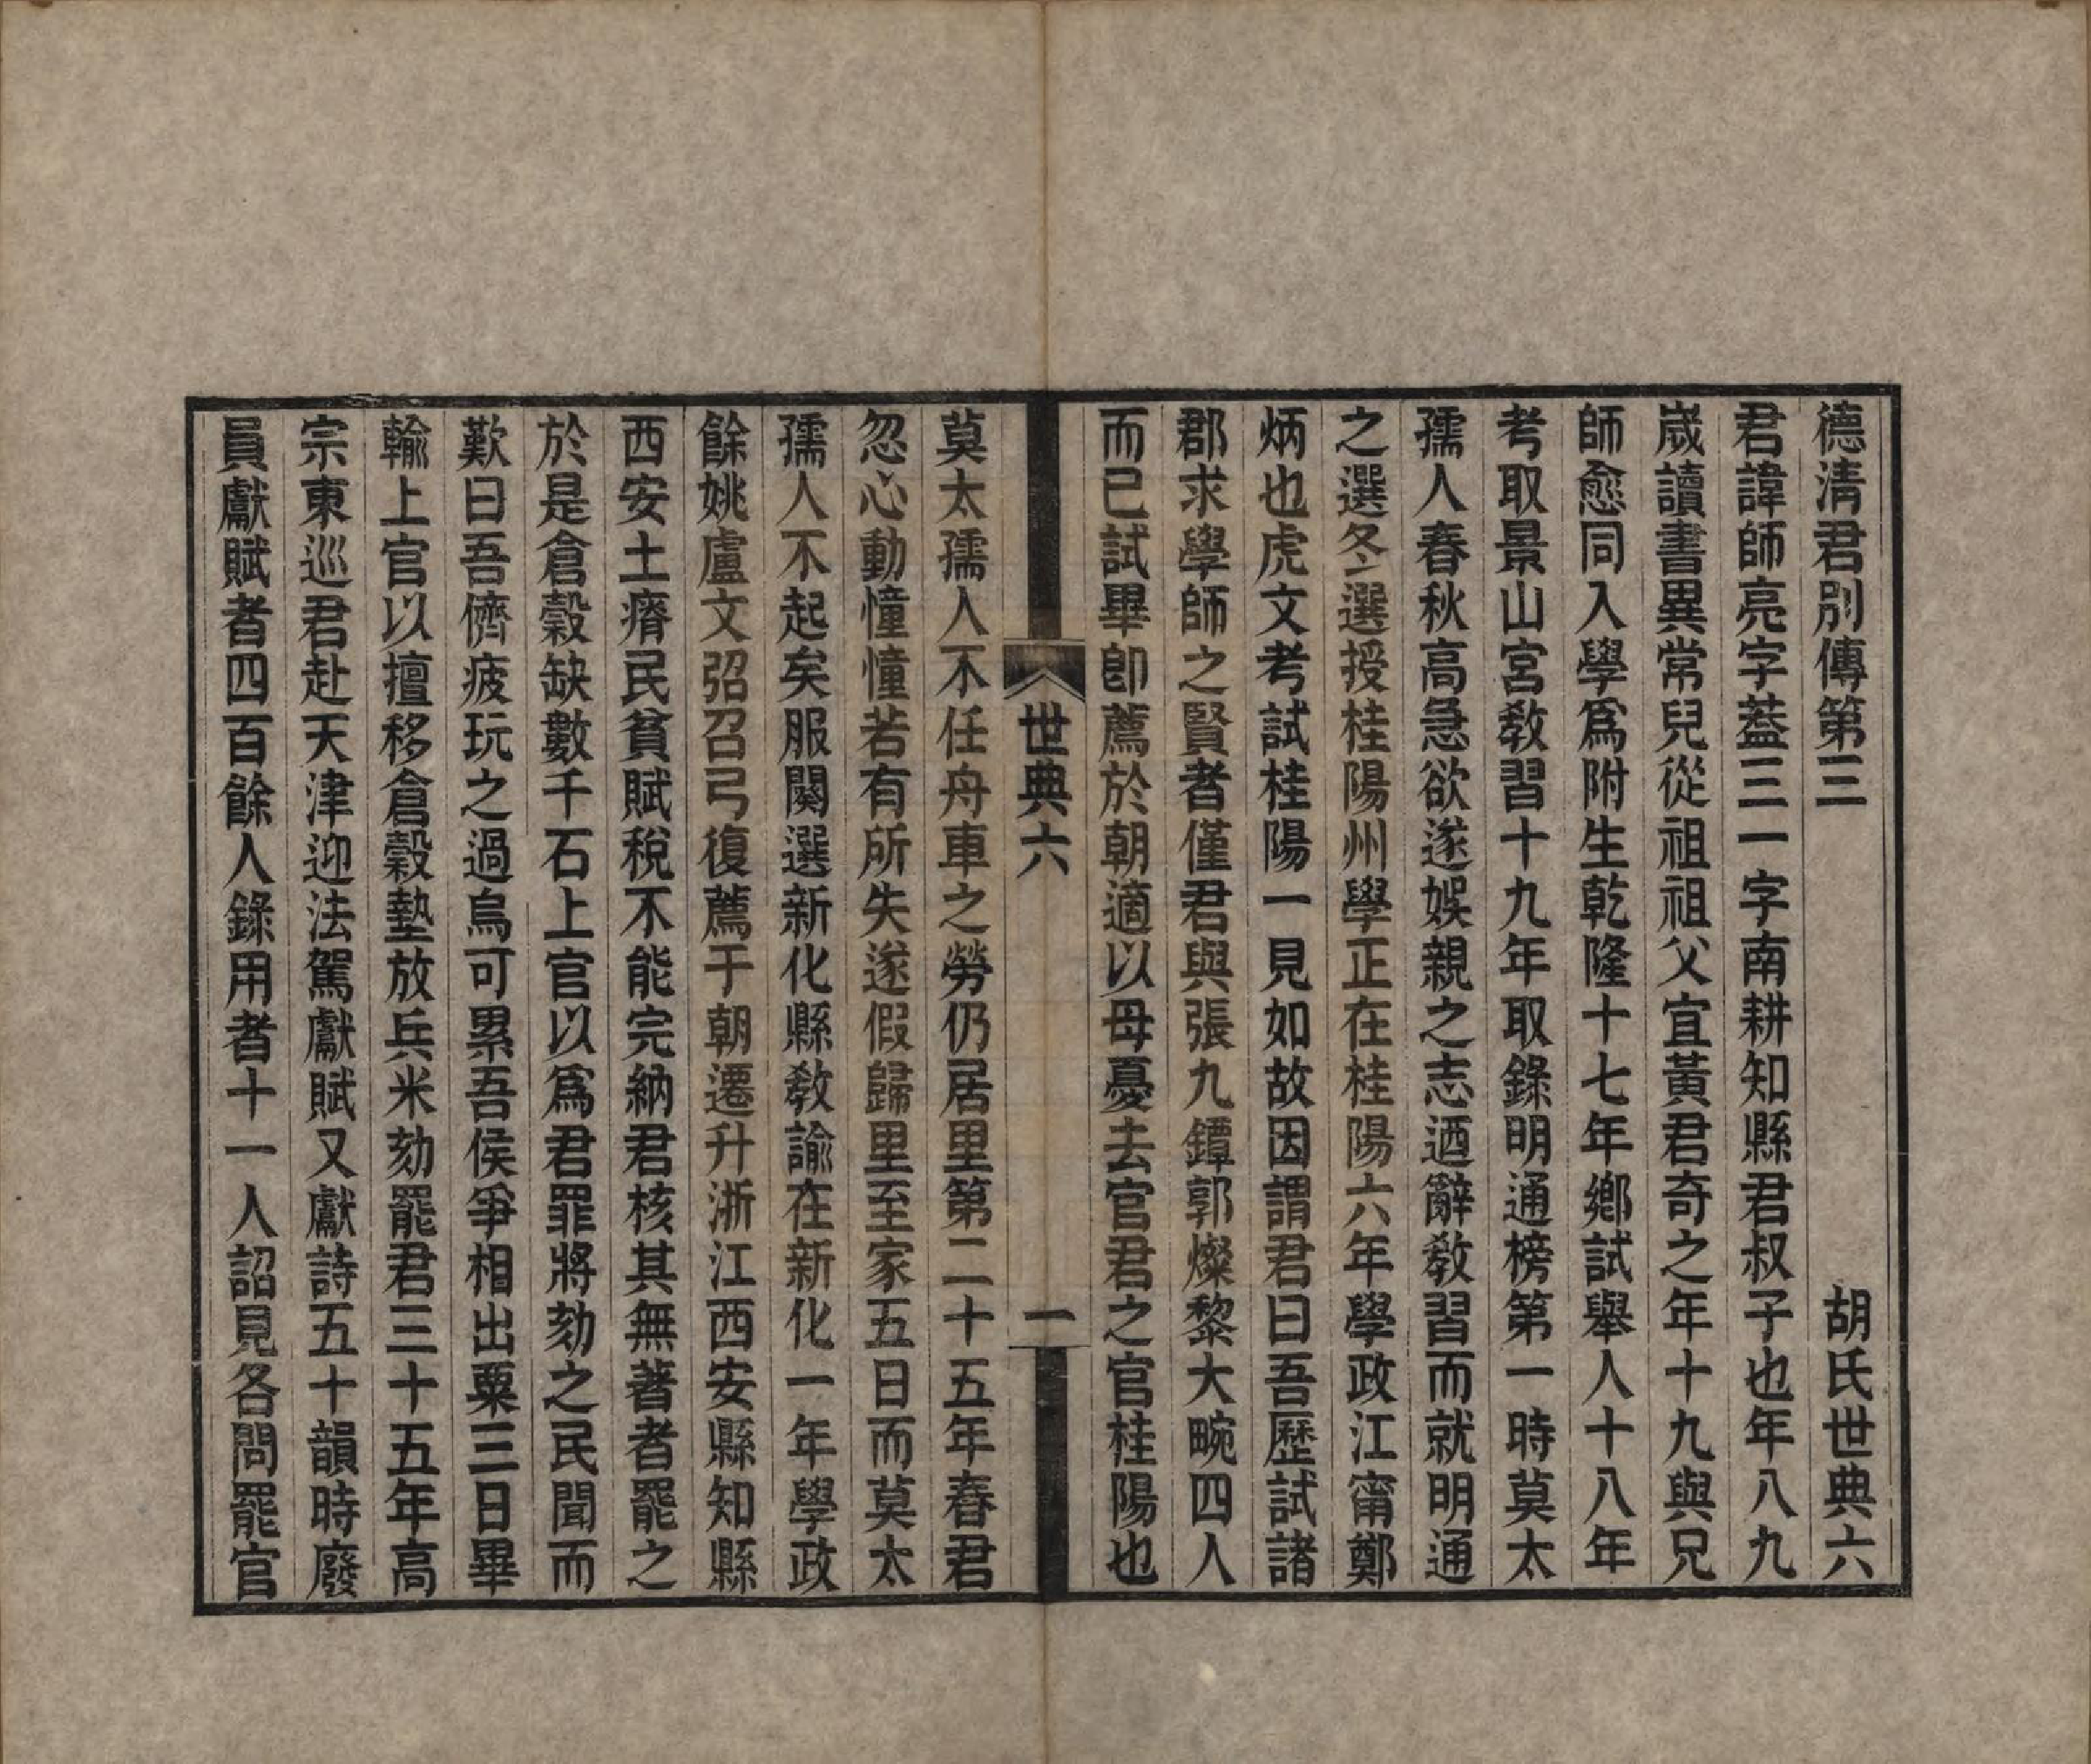 德清君別傳第三　　　　　　　　胡氏世典六
君諱師亮字葢三一字南耕知縣君叔子也年八九
嵗讀書異常兒從祖祖父宜黃君奇之年十九與兄
師愈同入學爲附生乾隆十七年鄉試舉人十八年
考取景山宮敎習十九年取錄明通榜第一時莫太
孺人春秋高急欲遂娛親之志迺辭敎習而就明通
之選冬選授桂陽州學正在桂陽六年學政江甯鄭
炳也虎文考試桂陽一見如故因謂君曰吾歷試諸
郡求學師之賢者僅君與張九鐔郭燦黎大畹四人
而已試畢卽薦於朝適以母憂去官君之官桂陽也
世典六　一
莫太孺人不任舟車之勞仍居里第二十五年春君
忽心動憧憧若有所失遂假歸里至家五日而莫太
孺人不起矣服闋選新化縣敎諭在新化一年學政
餘姚盧文弨召弓復薦于朝遷升浙江西安縣知縣
西安土瘠民貧賦稅不能完納君核其無著者罷之
於是倉穀缺數千石上官以爲君罪將劾之民聞而
歎曰吾儕疲玩之過烏可累吾侯爭相出粟三日畢
輸上官以擅移倉穀墊放兵米劾罷君三十五年高
宗東巡君赴天津迎法駕獻賦又獻詩五十韻時廢
員獻賦者四百餘人錄用者十一人詔見各問罷官